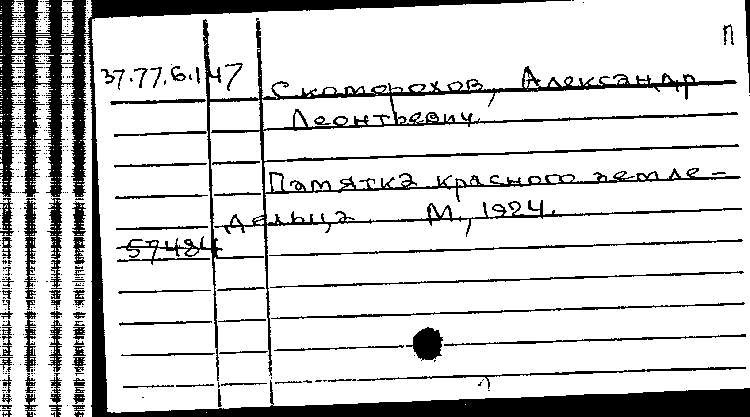 П
37.77.6.147 Скоморохов, Александр
Леонтьевич.
Памятка красного земле-
дельца. М., 1924.
57484